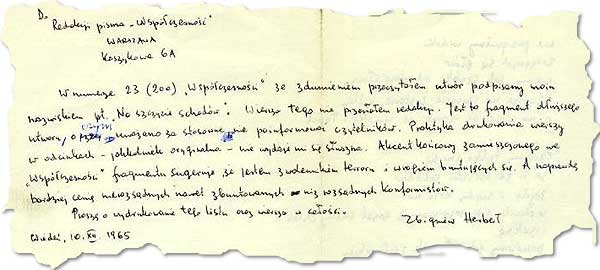 Do
Redakcji pisma „Współczesność"
WARSZAWA
Koszykowa 6A
W numerze 23 (200) „Współczesności" ze zdumieniem przeczytałem utwór podpisany moim
nazwiskiem pt. „Na szczycie schodów". Wiersza tego nie przesłałem redakcji. Jest to fragment dłuższego
utworu, o czym uważano za stosowne nie poinformować czytelników. Praktyka drukowania wierszy
w odcinkach - jakkolwiek oryginalna - nie wydaje mi się słuszna. Akcent końcowy zamieszczonego we
„Współczesności" fragmentu sugeruje, że jestem zwolennikiem terroru i wrogiem buntujących się. A naprawdę
bardziej cenię nierozsądnych nawet zbuntowanych niż rozsądnych konformistów.
Proszę o wydrukowanie tego listu oraz wiersza w całości.
Zbigniew Herbert
Wiedeń, 10. XII. 1965